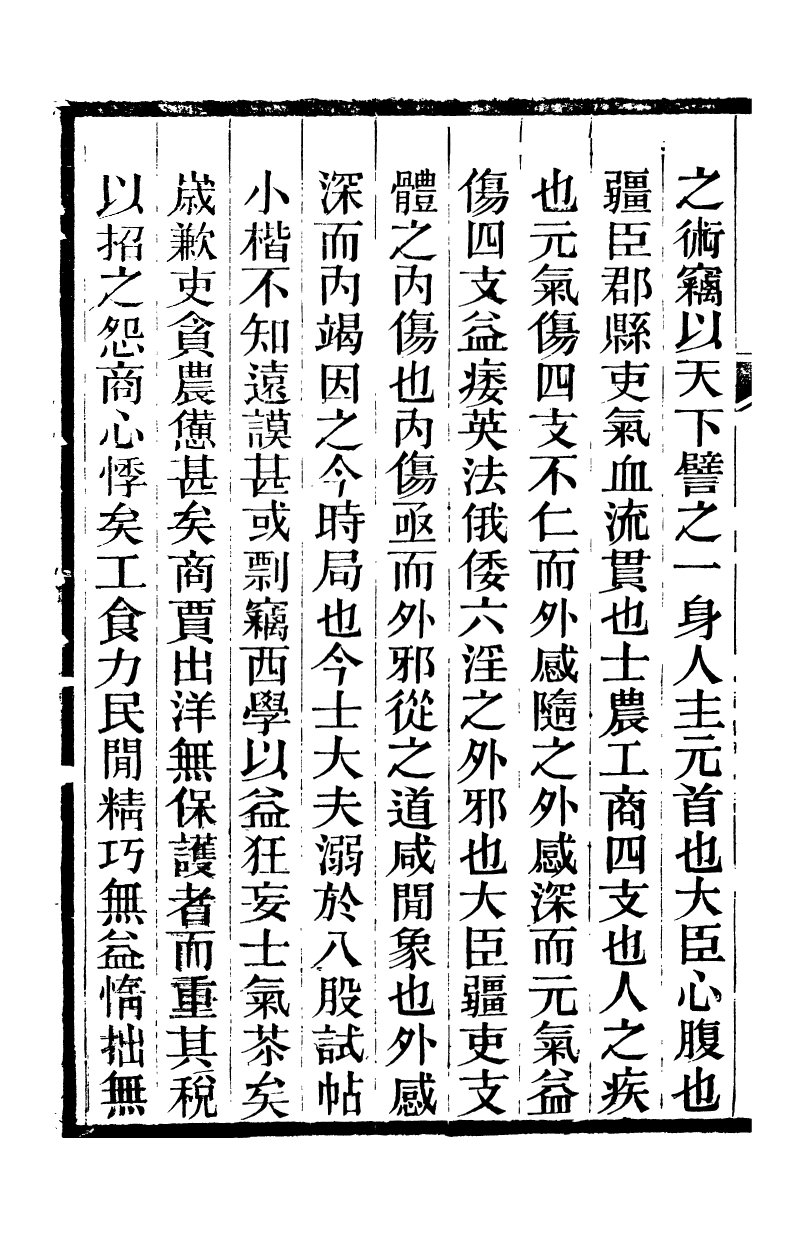 之術竊以天下譬之一身人主元首也大臣心腹也
疆臣郡縣吏氣血流貫也士農工商四支也人之疾
也元氣傷四支不仁而外感隨之外感深而元氣益
傷四支益痿英法俄倭六淫之外邪也大臣疆吏支
體之内傷也内傷亟而外邪從之道咸閒象也外感
深而内竭因之今時局也今士大夫溺於八股試帖
小楷不知遠謨甚或剽竊西學以益狂妄士氣苶矣
歲歉吏貪農憊甚矣商賈出洋無保護者而重其稅
以招之怨商心悸矣工食力民閒精巧無益惰拙無